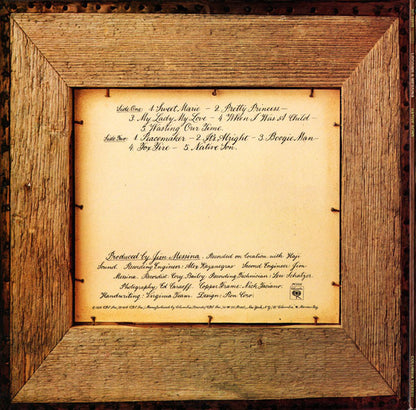 Side One: 1. Sweet Marie – 2. Pretty Princess –
3. My Lady, My Love – 4. When I Was A Child –
5. Wasting Our Time.
Side Two: 1. Peacemaker – 2. It's Alright – 3. Boogie Man –
4. Fox Fire – 5. Native Son.
Produced by Jim Messina. Recorded on Location with Haji
Sound. Recording Engineer: Alex Kazanegras Second Engineer: Jim
Messina. Recordist: Cory Bailey Recording Technician: Lew Schatzer.
Photography: Ed Caraeff. Copper Frame: Nick Fasciano.
Handwriting: Virginia Team. Design: Ron Coro.